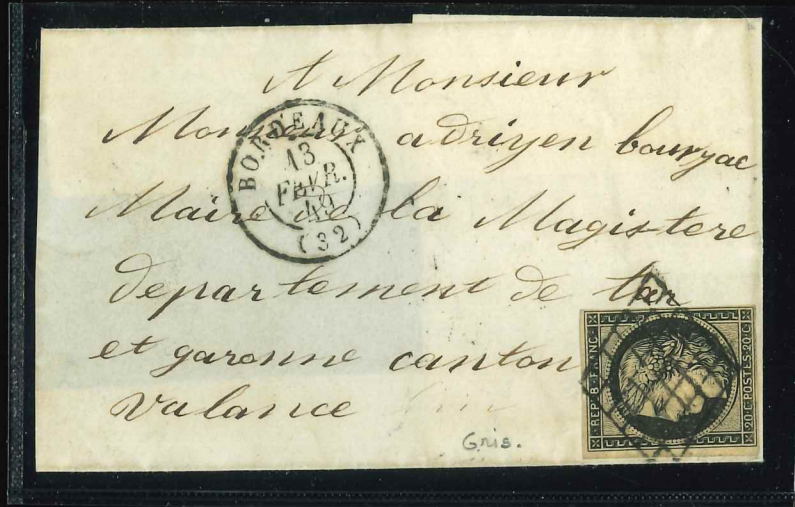 A Monsieur
Monsieur adriyen bouryac
Maire de la Magistere
departement de tar
et garonne canton
valance
BORDEAUX
13
FEVR.
49
(32)
REPUB. FRANC.
20 C. POSTES. 20 C.
Gris.